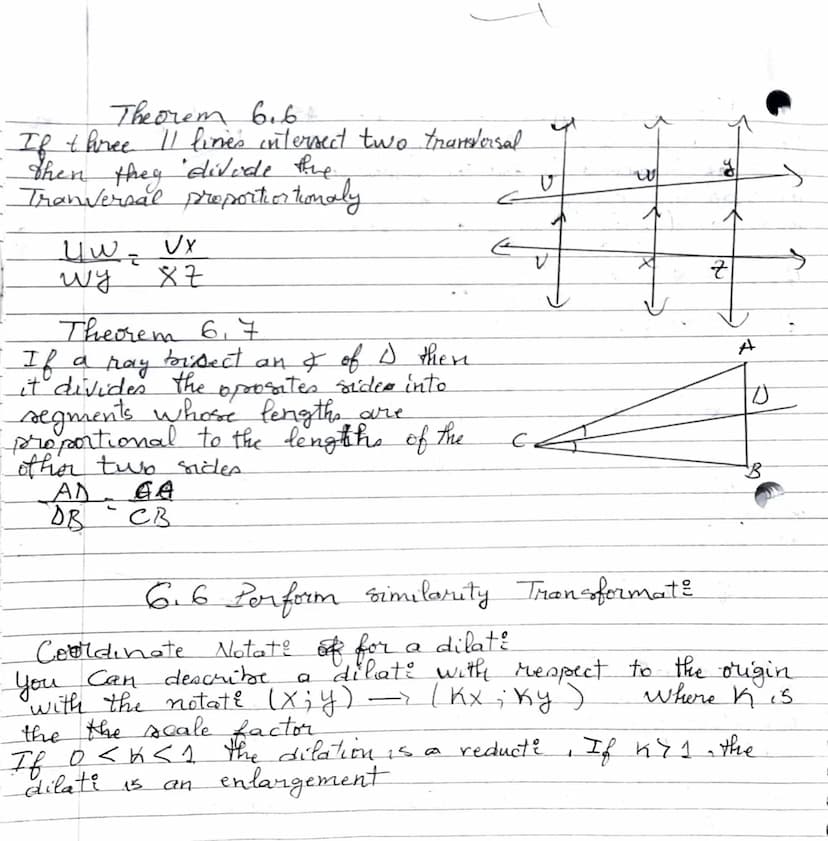 Theorem 6.6
If three // lines intersect two transversal
then they divide the
Tranversal proportionaly
UW/WY = VX/XZ
U W Y
V X Z
Theorem 6.7
If a ray bisect an ∡ of Δ then
it divides the oposites sides into
segments whose lengths are
proportional to the lengths of the
other two sides
AD/DB = CA/CB
A
D
C
B
6.6 Perform similarity Transformat:
Coordinate Notat: for a dilat:
You can describe a dilat: with respect to the origin
with the notat: (x;y) → (Kx;Ky) where K is
the the scale factor
If 0<K<1 the dilation is a reduct:, If K>1, the
dilat: is an enlargement